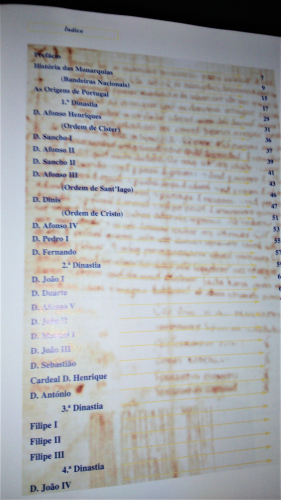 Índice
Prefácio 7
História das Monarquias 9
(Bandeiras Nacionais) 15
As Origens de Portugal 17
1.ª Dinastia 29
D. Afonso Henriques 31
(Ordem de Cister) 36
D. Sancho I 37
D. Afonso II 39
D. Sancho II 41
D. Afonso III 43
(Ordem de Sant'Iago) 46
D. Dinis 47
(Ordem de Cristo) 51
D. Afonso IV 53
D. Pedro I 55
D. Fernando 57
2.ª Dinastia
D. João I
D. Duarte
D. Afonso V
D. João II
D. Manuel I
D. João III
D. Sebastião
Cardeal D. Henrique
D. António
3.ª Dinastia
Filipe I
Filipe II
Filipe III
4.ª Dinastia
D. João IV